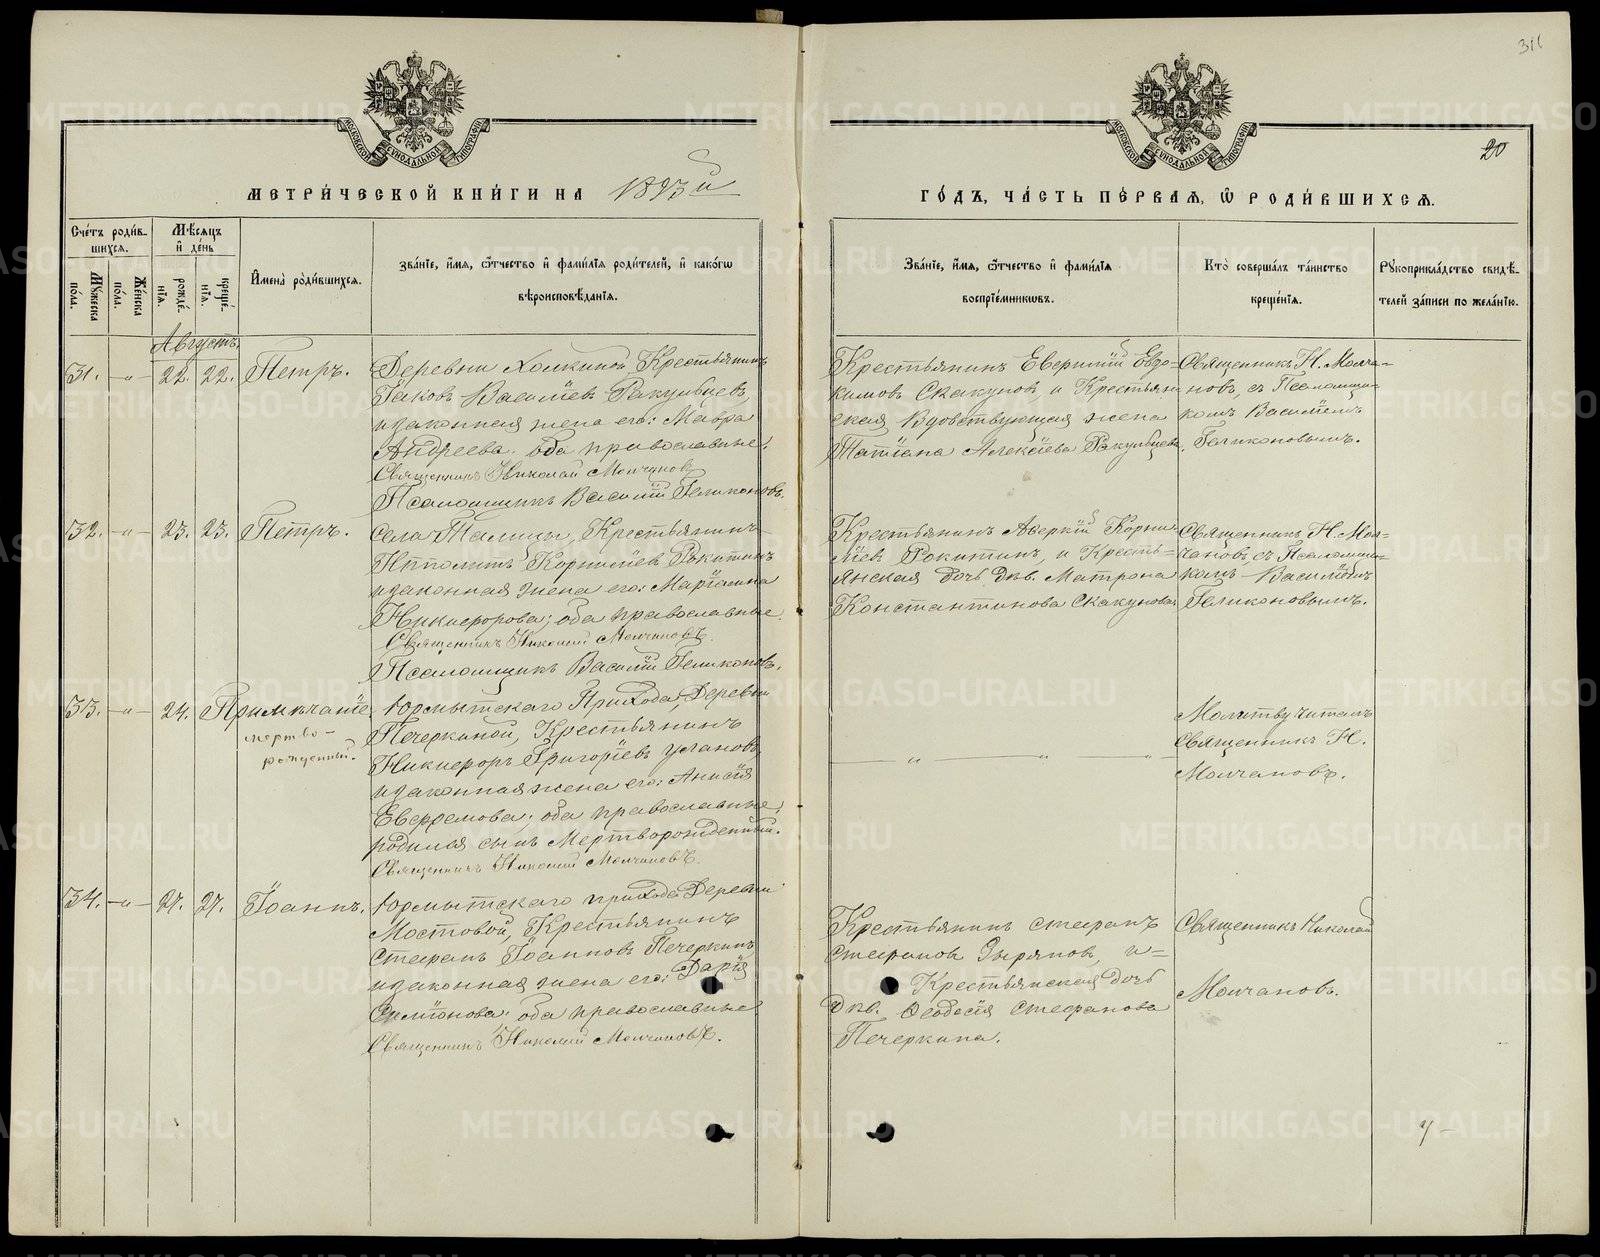 311
20
МОСКОВСКОЙ СѴНОДАЛЬНОЙ ТИПОГРАФІИ
МОСКОВСКОЙ СѴНОДАЛЬНОЙ ТИПОГРАФІИ
МЕТРИ́ЧЕСКОЙ КНИ́ГИ НА 1893 й
ГО́ДЪ, ЧА́СТЬ ПЕ́РВАѦ, Ѡ҆ РОДИ́ВШИХСѦ.
Сче́тъ роди́в-
шихсѧ.
Мꙋ́жеска по́ла.
Же́нска по́ла.
Мѣ́сѧцъ и҆ де́нь
рожде́-нїѧ.
креще́-нїѧ.
И҆мена̀ роди́вшихсѧ.
Зва́нїе, и҆́мѧ, ѻ҆́тчество и҆ фами́лїѧ роди́телей, и҆ како́гѡ
вѣроисповѣ́данїѧ.
Зва́нїе, и҆́мѧ, ѻ҆́тчество и҆ фами́лїѧ
воспрїе́мниковъ.
Кто̀ соверша́лъ та́инство
креще́нїѧ.
Рꙋкоприкла́дство свидѣ́-
телей за́писи по жела́нїю.
Августъ
31. -"- 22. 22. Петръ.
Деревни Холкиной, Крестьянинъ
Іаковъ Василіевъ Ракульцевъ,
и законная жена его: Мавра
Андреева, оба православные.
Священникъ Николай Молчановъ
Псаломщикъ Василій Геликоновъ.
Крестьянинъ Евдо-
кимовъ Скакуновъ, и Крестьян
ская Вдовствующая жена
Татіана Алексіева Ракульцева.
Священникъ Н. Молча-
новъ, съ Псаломщи-
комъ Василіемъ
Геликоновымъ.
32. -"- 23. 23. Петръ.
Села Талицы, Крестьянинъ
Ипполитъ Корниліевъ Рокитинъ
и законная жена его: Маріамна
Никифорова; оба православные.
Священникъ Николай Молчановъ.
Псаломщикъ Василій Геликоновъ.
Крестьянинъ Аверкій Корни-
ліевъ Рокитинъ, и Кресть-
янская дочь дѣв. Матрона
Константинова Скакунова.
Священникъ Н. Мол-
чановъ, съ Псаломщи-
комъ Василіемъ
Геликоновымъ.
33. -"- 24. Примѣчаніе:
мертво-
рожденный.
Юрмытскаго Прихода, Деревни
Печеркиной, Крестьянинъ
Никифоръ Григоріевъ Улановъ
и законная жена его: Анисія
Евфремова; оба православные;
родился сынъ Мертворожденный.
Священникъ Николай Молчановъ.
" " "
Молитву читалъ
Священникъ Н.
Молчановъ.
34. -"- 27. 27. Іоаннъ.
Юрмытскаго прихода Деревни
Мостовой, Крестьянинъ
Стефанъ Іоанновъ Печеркинъ
и законная жена его: Дарія
Симеонова; оба православные
Священникъ Николай Молчановъ.
Крестьянинъ Стефанъ
Стефановъ Зыряновъ, и-
Крестьянская дочь
дѣв. Ѳеодосія Стефанова
Печеркина.
Священникъ Николай
Молчановъ.
METRIKI.GASO-URAL.RU